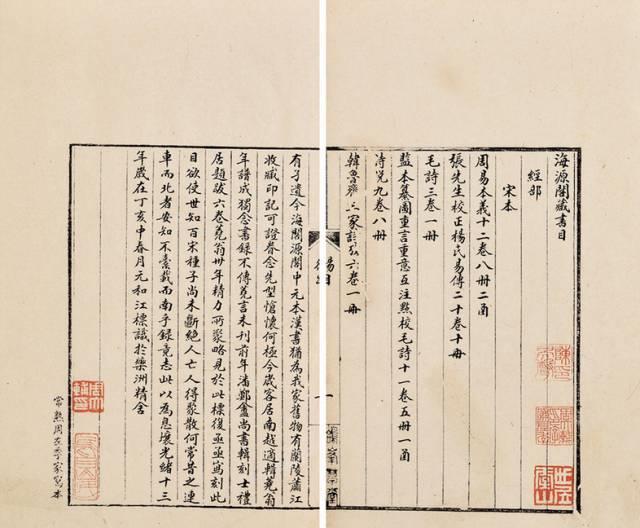 海源閣藏書目
經部
宋本
周易本義十二卷八冊二函
張先生校正楊氏易傳二十卷十冊
毛詩三卷一冊
監本纂圖重言重意互注點校毛詩十一卷五冊一函
詩說九卷八冊
韓魯齊三家詩考六卷一冊
一
有子遺今海閣源閣中元本漢書猶為我家舊物有蘭陵蕭江
收臧印記可證眷念先型愴懷何極今歲客居南越適輯蕘翁
年譜成獨念書錄不傳蕘言未刊前年潘鄭盦尚書輯刻士禮
居題跋六卷蕘翁卅年精力所聚略見於此標復亟亟寫刻此
目欲使世知百宋種子尚未斷絕人亡人得聚散何常昔之連
車而北者安知不橐載而南乎錄竟志此以為息壤光緒十三
年歲在丁亥中春月元和江標識於欒洲精舍
常熟周左季家寫本